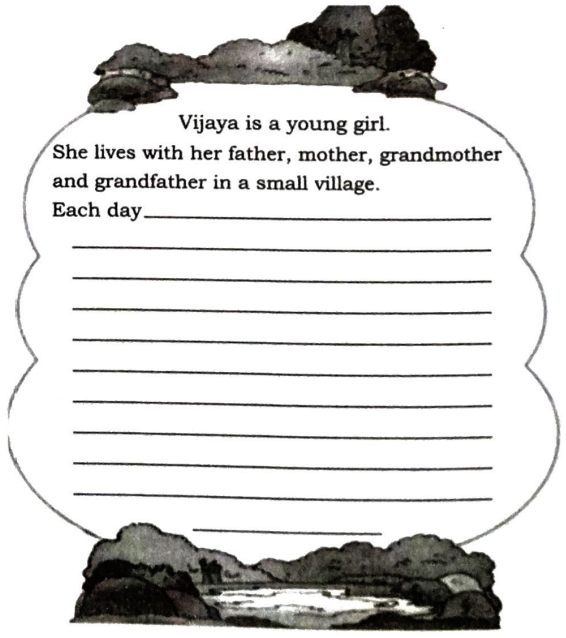 Vijaya is a young girl.
She lives with her father, mother, grandmother
and grandfather in a small village.
Each day